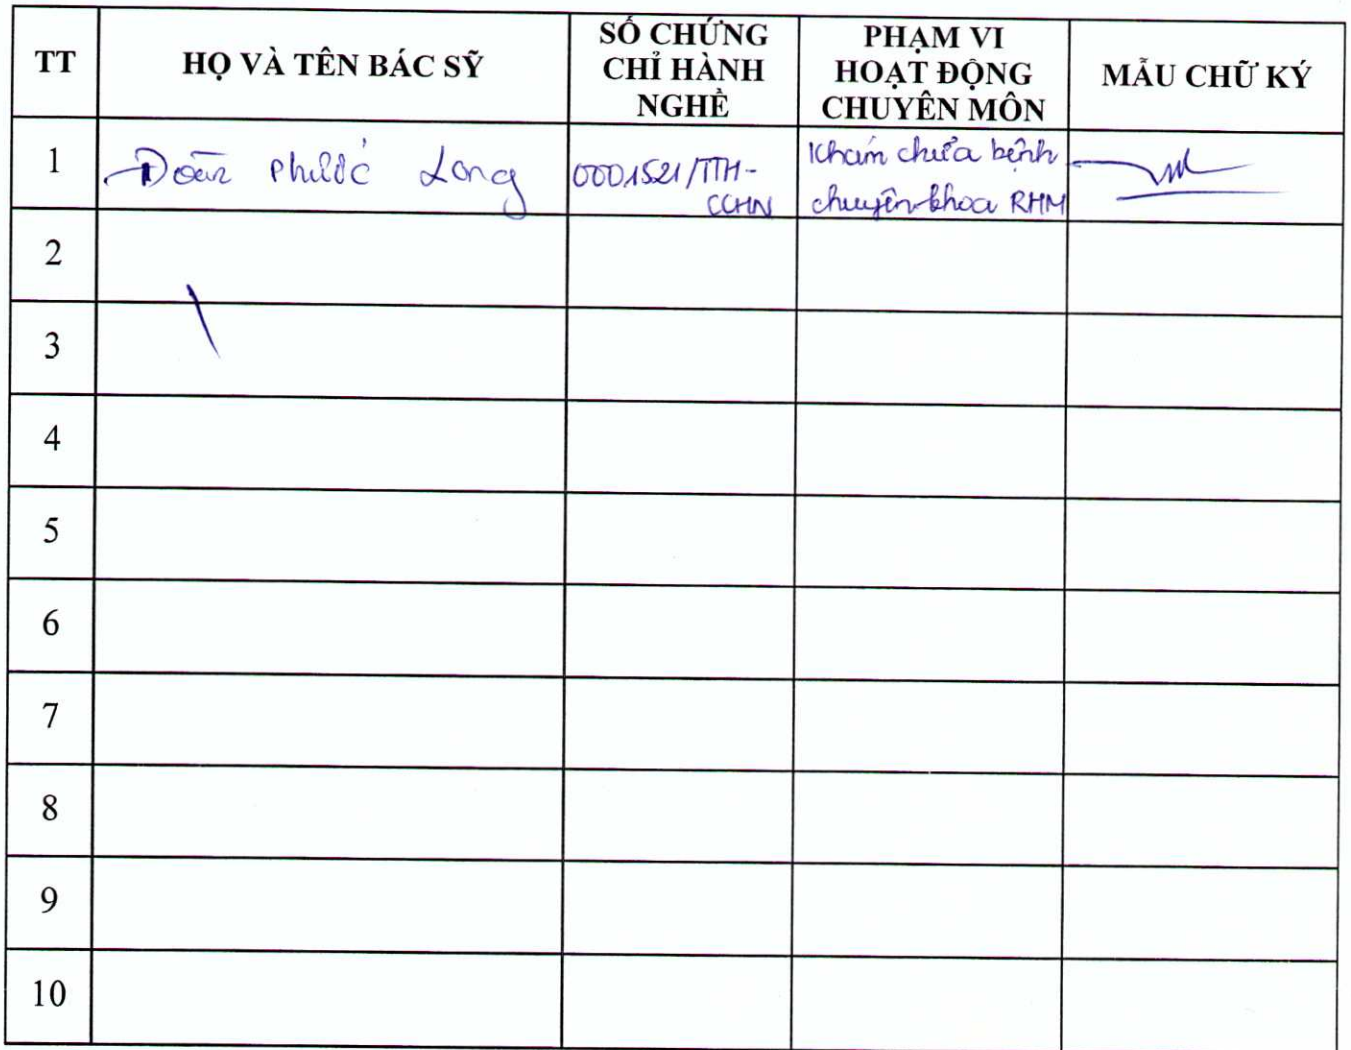 TT HỌ VÀ TÊN BÁC SỸ SỐ CHỨNG CHỈ HÀNH NGHỀ PHẠM VI HOẠT ĐỘNG CHUYÊN MÔN MẪU CHỮ KÝ
1 Đoàn Phước Long 0001521/TTH-
CCHN Khám chữa bệnh
chuyên khoa RHM
2
3
4
5
6
7
8
9
10